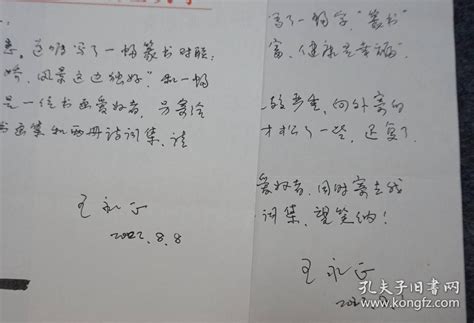 这次写了一幅篆书对联：
风景这边独好"和一幅
是一位书画爱好者，另寄给
书画集和两册诗词集，请
王永正
2022.8.8
写了一幅字，"篆书"
富，健康是幸福"
较严重，向外寄的
才松了一些，还复了
爱好者，同时寄去我
词集，望笑纳！
王永正
孔夫子旧书网
www.kongfz.com